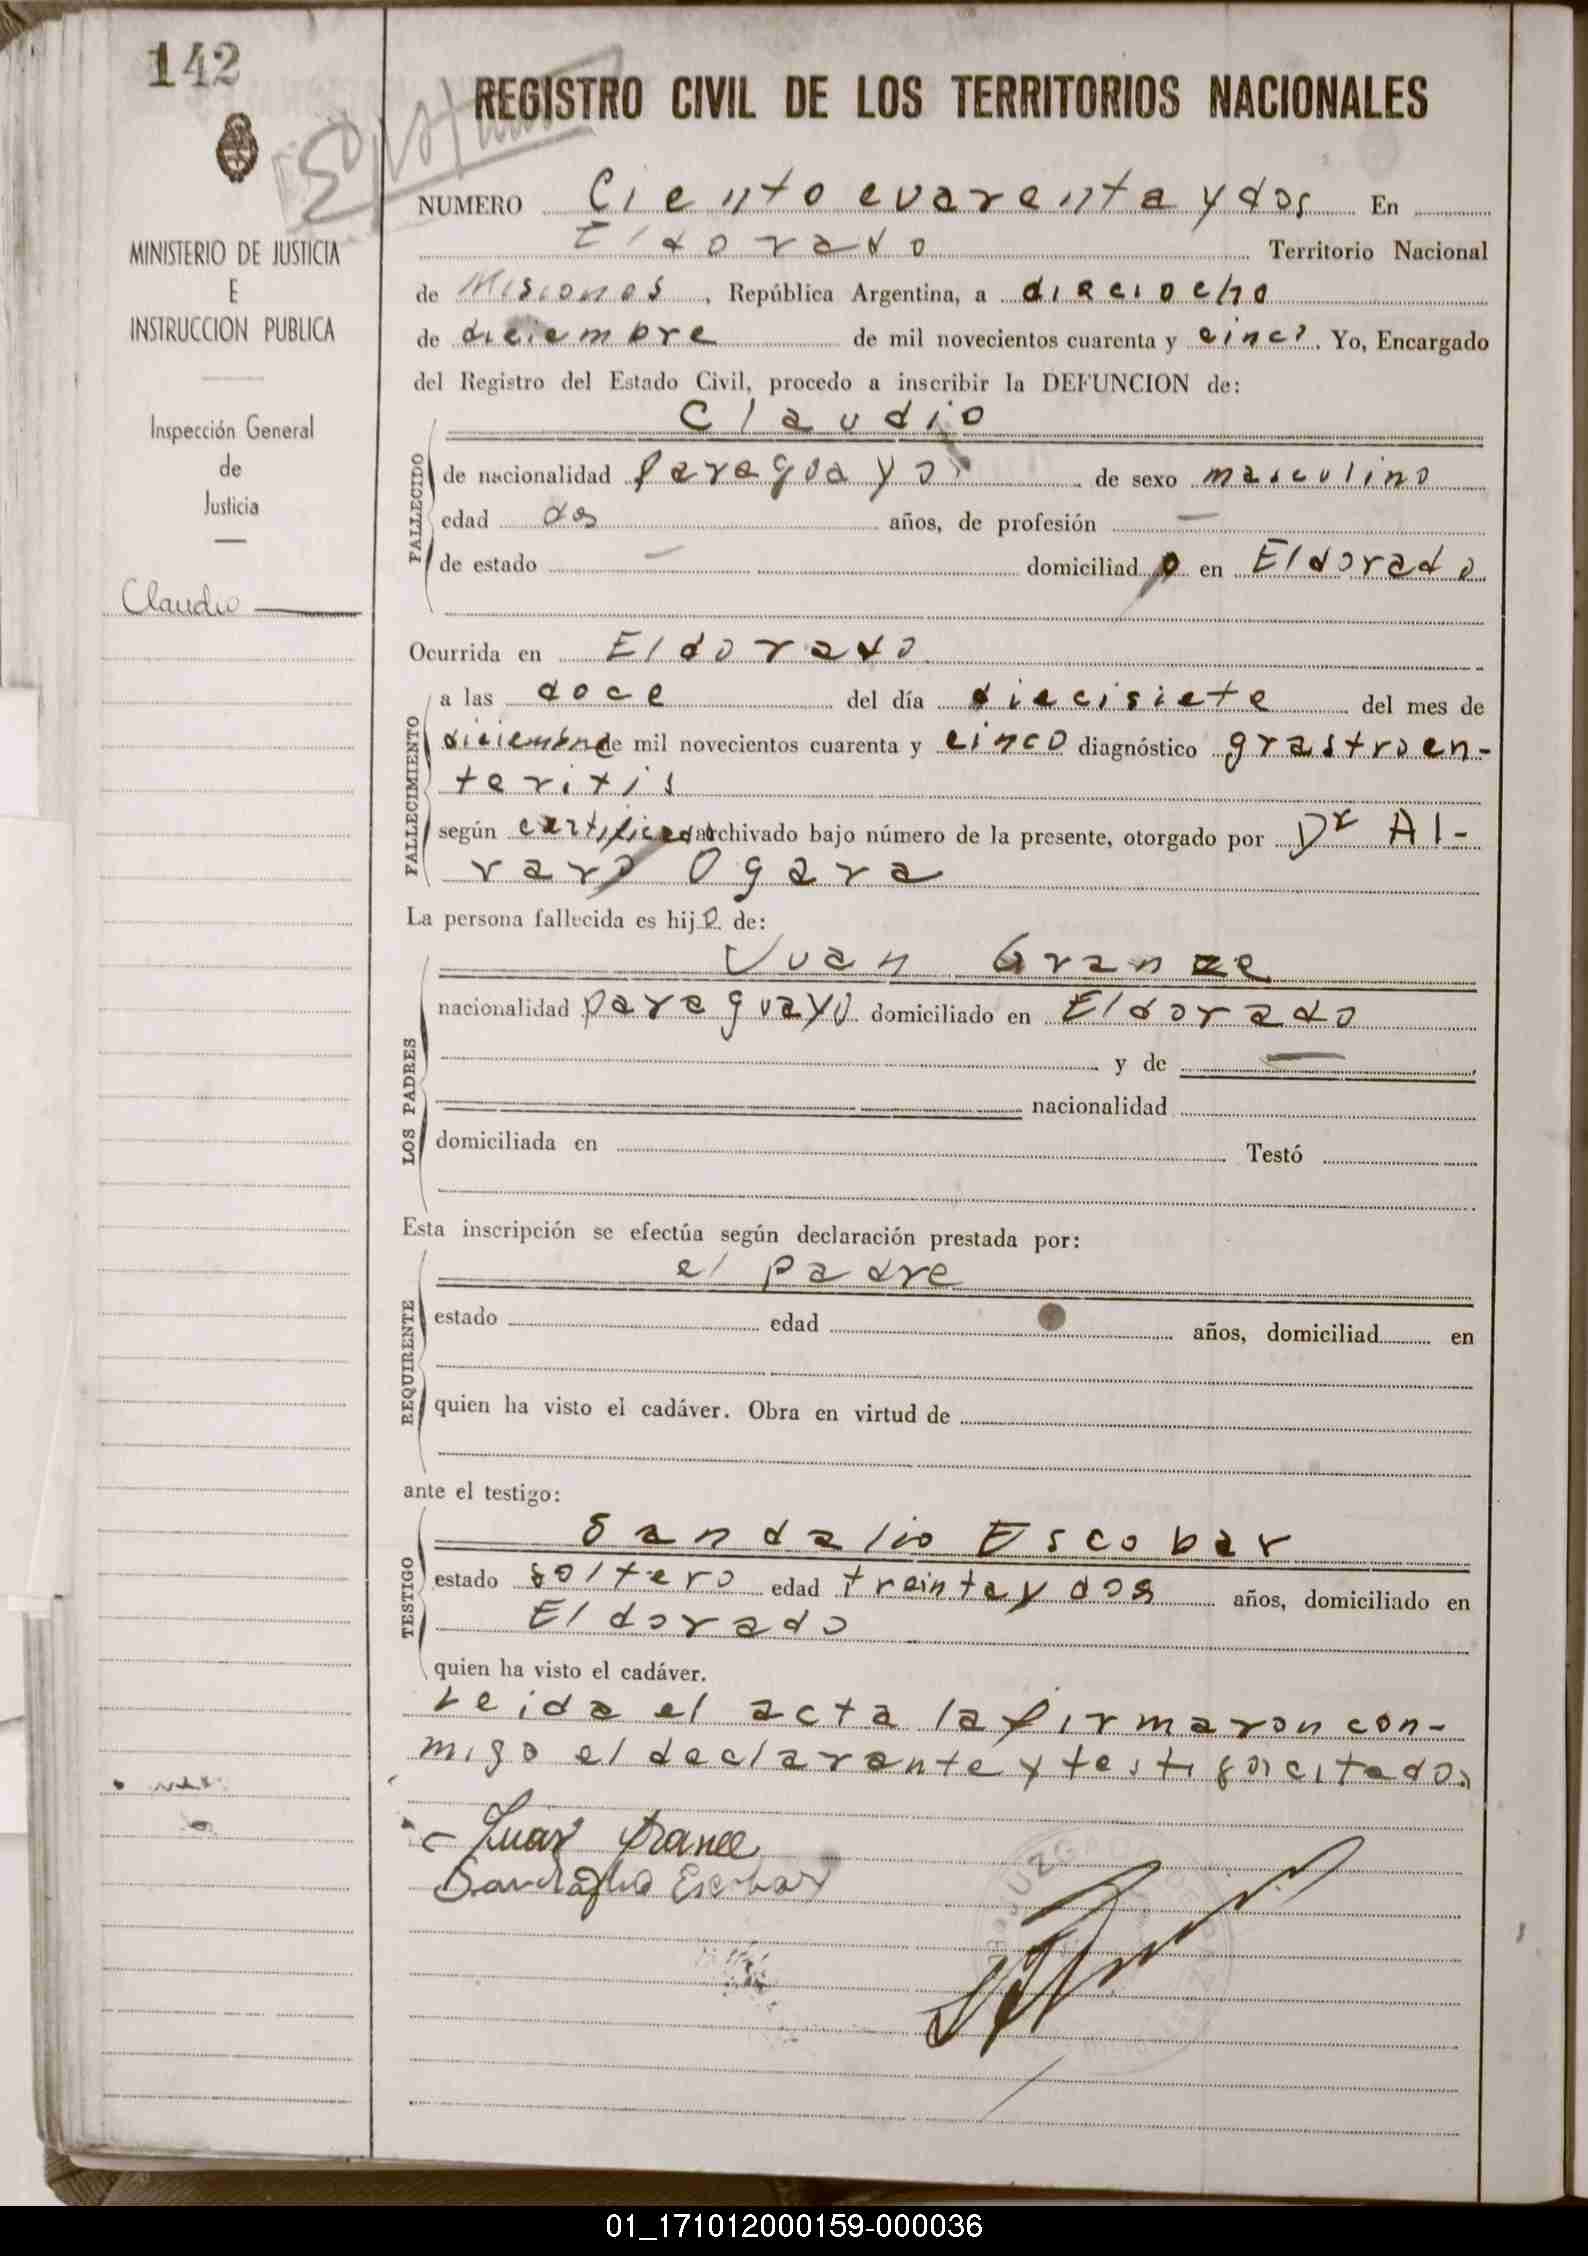 142
REGISTRO CIVIL DE LOS TERRITORIOS NACIONALES
MINISTERIO DE JUSTICIA
E
INSTRUCCION PUBLICA
Inspección General
de
Justicia
Claudio
NUMERO Ciento cuarenta y dos En
Eldorado Territorio Nacional
de Misiones, República Argentina, a dieciocho
de diciembre de mil novecientos cuarenta y cinco. Yo, Encargado
del Registro del Estado Civil, procedo a inscribir la DEFUNCION de:
Claudio
FALLECIDO
de nacionalidad paraguayo de sexo masculino
edad dos años, de profesión —
de estado — domiciliado en Eldorado
Ocurrida en Eldorado
FALLECIMIENTO
a las doce del día diecisiete del mes de
diciembre de mil novecientos cuarenta y cinco diagnóstico grastroen-
teritis
según certificado archivado bajo número de la presente, otorgado por Dr Al-
varo Ogara
La persona fallecida es hijo de:
LOS PADRES
Juan
nacionalidad paraguayo domiciliado en Eldorado
y de —
nacionalidad
domiciliada en Testó
Esta inscripción se efectúa según declaración prestada por:
REQUIRENTE
el padre
estado edad años, domiciliad en
quien ha visto el cadáver. Obra en virtud de
ante el testigo:
TESTIGO
Sandalio Escobar
estado soltero edad treinta y dos años, domiciliado en
Eldorado
quien ha visto el cadáver.
Leida el acta la firmaron con-
migo el declarante y testigos citados
Juan
Sandalio Escobar
01_171012000159-000036